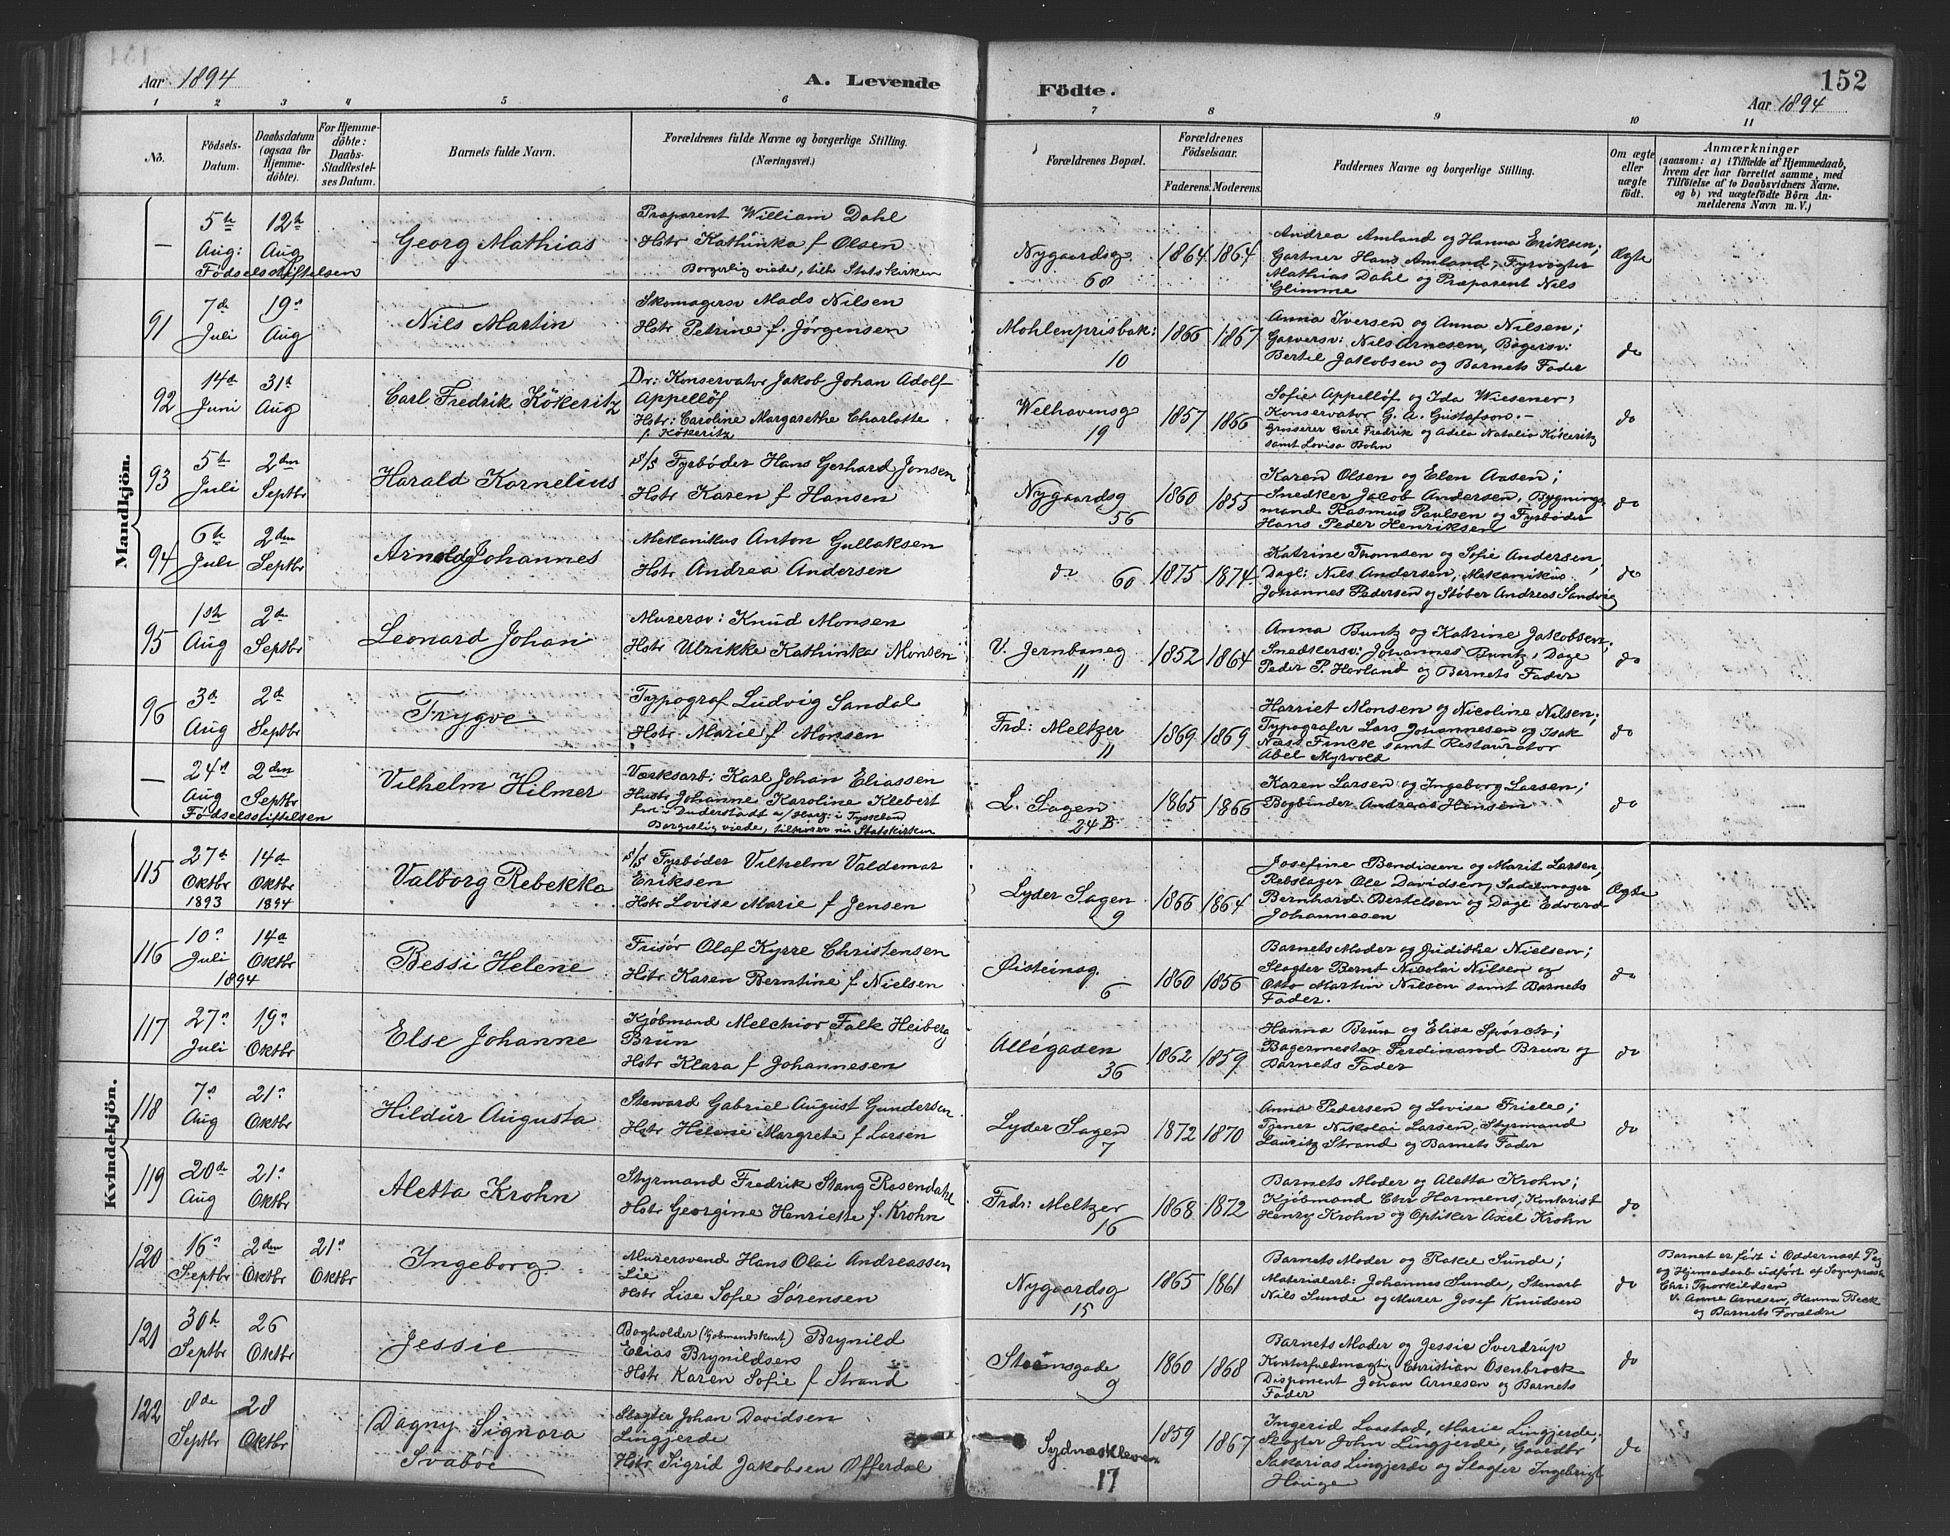 Aar 1894
A. Levende
Födte.
152
Aar 1894
1 2 3 4 5 6 7 8 9 10 11
No.
Födsels-
Datum.
Daabsdatum
(ogsaa for
Hjemme-
döbte).
For Hjemme-
döbte:
Daabs-
Stadfæstel-
ses Datum.
Barnets fulde Navn.
Forældrenes fulde Navne og borgerlige Stilling.
(Næringsvei.)
Forældrenes Bopæl.
Forældrenes
Födselsaar.
Faderens. Moderens.
Faddernes Navne og borgerlige Stilling.
Om ægte
eller
uægte
födt.
Anmærkninger
(saasom: a) i Tilfælde af Hjemmedaab,
hvem der har forrettet samme, med
Tilföielse af to Daabsvidners Navne.
og b) ved uægtefödte Börn An-
melderens Navn m. V.)
Mandkjön.
— 5te Aug: 12te Aug
Födselsstiftelsen
Georg Mathias
Præparent William Dahl
Hstr Kathinka f Olsen
Borgerlig viede, tilh Statskirken
Nygaardsg
68
1864 1864
Andrea Amland og Hanna Eriksen;
Gartner Hans Amland, Fyrvogter
Mathias Dahl og Præparent Nils
Glimme
Ægte
91 7de Juli 19n Aug
Nils Martin
Skomagersv Mads Nilsen
Hstr Petrine f. Jørgensen
Mohlenprisbak:
10
1866 1867
Anna Iversen og Anna Nilsen;
Garversv: Nils Arnesen, Bøgersv:
Bertil Jakobsen og Barnets Fader
do
92 14de Juni 31te Aug
Carl Fredrik Kökeritz
Dr: Konservator Jakob Johan Adolf
Appellöf
Hstr: Caroline Margarethe Charlotte
f. Kökeritz
Welhavensg
19
1857 1866
Sofie Appellöf og Ida Wiesener;
Konservator G. A. Gustafson. -
Grosserer Carl Fredrik og Adela Natalia Kökeritz
samt Lovisa Bohn
do
93 5te Juli 2den Septbr
Harald Kornelius
s/s Fyrbøder Hans Gerhard Jonsen
Hstr Karen f Hansen
Nygaardsg
56
1860 1855
Karen Olsen og Elen Aasen;
Snedker Jacob Andersen, Bygnings-
mand Rasmus Paulsen og Fyrbøder
Hans Peder Henriksen
do
94 6te Juli 2den Septbr
Arnold Johannes
Mekanikus Anton Gullaksen
Hstr Andrea Andersen
do 60
1875 1874.
Katrine Thomsen og Sofie Andersen;
Dagl: Nils Andersen, Mekanikus
Johannes Pedersen og Støber Andreas Sandvig
do
95 1ste Aug 2de Septbr
Leonard Johan
Murersv: Knud Monsen
Hstr Ulrikke Kathinka Monsen
V. Jernbaneg
11
1852 1864
Anna Buntz og Katrine Jakobsen;
Snedkersv: Johannes Buntz, Dagl
Peder P. Hovland og Barnets Fader
do
96 3de Aug 2de Septbr
Trygve
Typograf Ludvig Sandal
Hstr Marie f Monsen
Frd: Meltzer
11
1869 1869
Harriet Monsen og Nicoline Nilsen;
Typografer Lars Johannesen og Isak
Næss Finck samt Restauratør
Abel Myrvold
do
— 24n Aug 2den Septbr
Födselsstiftelsen
Vilhelm Hilmer
Værksarb: Karl Johan Eliassen
Hustr Johanne Karoline Klebert
fra Duderstadt a/Harz: i Tyskland
Borgerlig viede, tilhører nu Statskirken
L. Sagen
24 B
1865 1866
Karen Larsen og Ingeborg Larsen;
Bogbinder Andreas Hansen
do
Kvindekjön.
115 27de Oktbr 1893 14de Oktbr 1894
Valborg Rebekka
s/s Fyrbøder Vilhelm Valdemar
Eriksen
Hstr Lovise Marie f Jensen
Lyder Sagen
9
1866 1864
Josefine Bendixen og Marit Larsen,
Rebslager Ole Davidsen, Sadelmager
Bernhard Bertelsen og Dagl Edvard
Johannesen
Ægte
116 10n Juli 14de Oktbr
1894
Bessi Helene
Frisør Olaf Kyrre Christensen
Hstr Karen Berntine f Nielsen
Øisteinsg
6
1860 1856
Barnets Moder og Judithe Nielsen;
Slagter Bernt Nicolai Nilsen og
Otto Martin Nilsen samt Barnets
Fader.
do
117 27n Juli 19n Oktbr
Else Johanne
Kjøbmand Melchior Falk Heiberg
Brun
Hstr Klara f Johannesen
Allégaden
36
1862 1859
Hanna Brun og Elise Spørck;
Bagermester Ferdinand Brun og
Barnets Fader
do
118 7n Aug 21n Oktbr
Hildur Augusta
Steward Gabriel August Gundersen
Hstr Helene Margrete f Larsen
Lyder Sagen
7
1872 1870
Anna Pedersen og Lovise Friele;
Tjener Nikolai Larsen, Styrmand
Lauritz Strand og Barnets Fader
do
119 20de Aug 21n Oktbr
Aletta Krohn
Styrmand Fredrik Stang Rosendahl
Hstr Georgine Henriette f. Krohn
Frds: Meltzer
16
1868 1872
Barnets Moder og Aletta Krohn;
Kjøbmand Chr Harmens, Kontorist
Henry Krohn og Optiker Axel Krohn
do
120 16n Septbr 2den Oktbr 21n Oktbr
Ingeborg
Murersvend Hans Olai Andreassen
Lie
Hstr Lise Sofie Sørensen
Nygaardsg
15
1865 1861
Barnets Moder og Rakel Sunde;
Materialarb: Johannes Sunde, Stenarb
Nils Sunde og Murer Josef Knudsen
do
Barnet er født i Oddernæst Pg
og Hjemmedaab udført af Sognepræst
Chr: Thorkildsen
v. Anne Arnesen, Hanna Beck
og Barnets Forældre
121 30te Septbr 26 Oktbr
Jessie
Bogholder (Kjøbmandskont) Brynild
Elias Brynildsen
Hstr Karen Sofie f Strand
Strømsgade
9
1860 1868
Barnets Moder og Jessie Sverdrup
Kontorfuldmægtig Christian Osenbrock
Disponent Johan Arnesen og Barnets
Fader
do
122 8de Septbr 28 Oktbr
Dagny Signora
Svaböe
Slagter Johan Davidsen
Lingjerde
Hstr Sigrid Jakobsen Offerdal
Sydnæskleven
17
1859 1867
Ingerid Laastad, Marie Lingjerde;
Slagter John Lingjerde, Gaardbr
Sakarias Lingjerde og Slagter Ingebrigt
Hauge
do